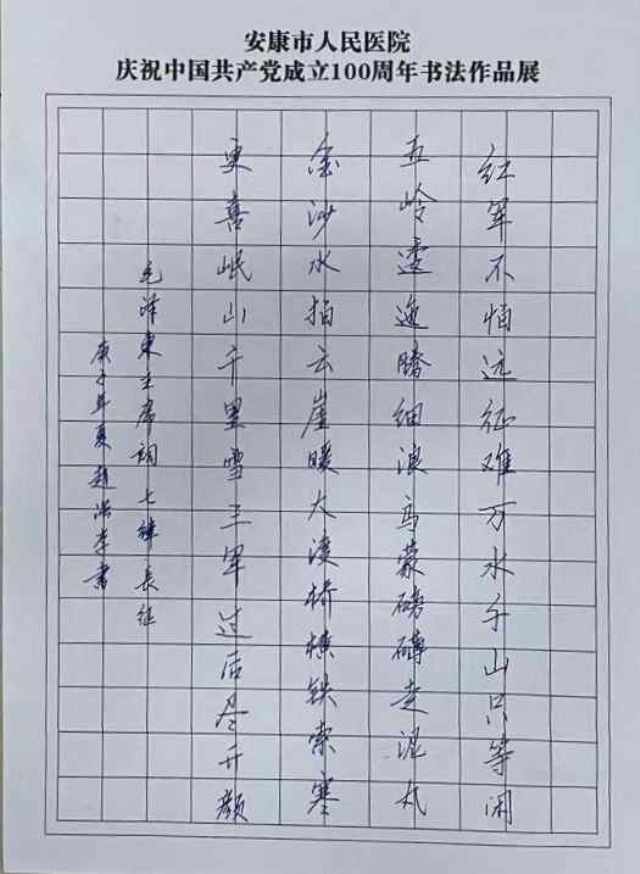 安康市人民医院
庆祝中国共产党成立100周年书法作品展
红军不怕远征难万水千山只等闲
五岭逶迤腾细浪乌蒙磅礴走泥丸
金沙水拍云崖暖大渡桥横铁索寒
更喜岷山千里雪三军过后尽开颜
毛泽东主席词七律长征
庚子年夏赵书